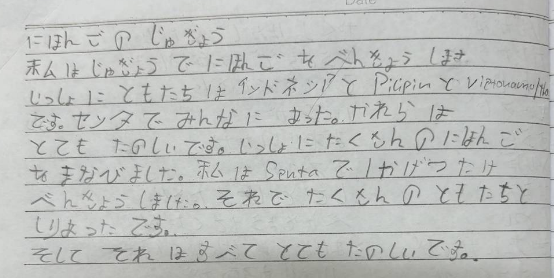 にほんごの じゅぎょう
私は じゅぎょう で にほんご を べんきょう します
じっしょに ともたち は インドネシアと Pilipin と
です。センタ で みんなに あった。かれら は
とても たのしい です。じっしょに たくさん の にほんご
を まなびました。私は Senta で 1かげつ たけ
べんきょう しました。それで たくさん の ともたちと
しりあった です。
そして それ は すべて とても たのしい です。